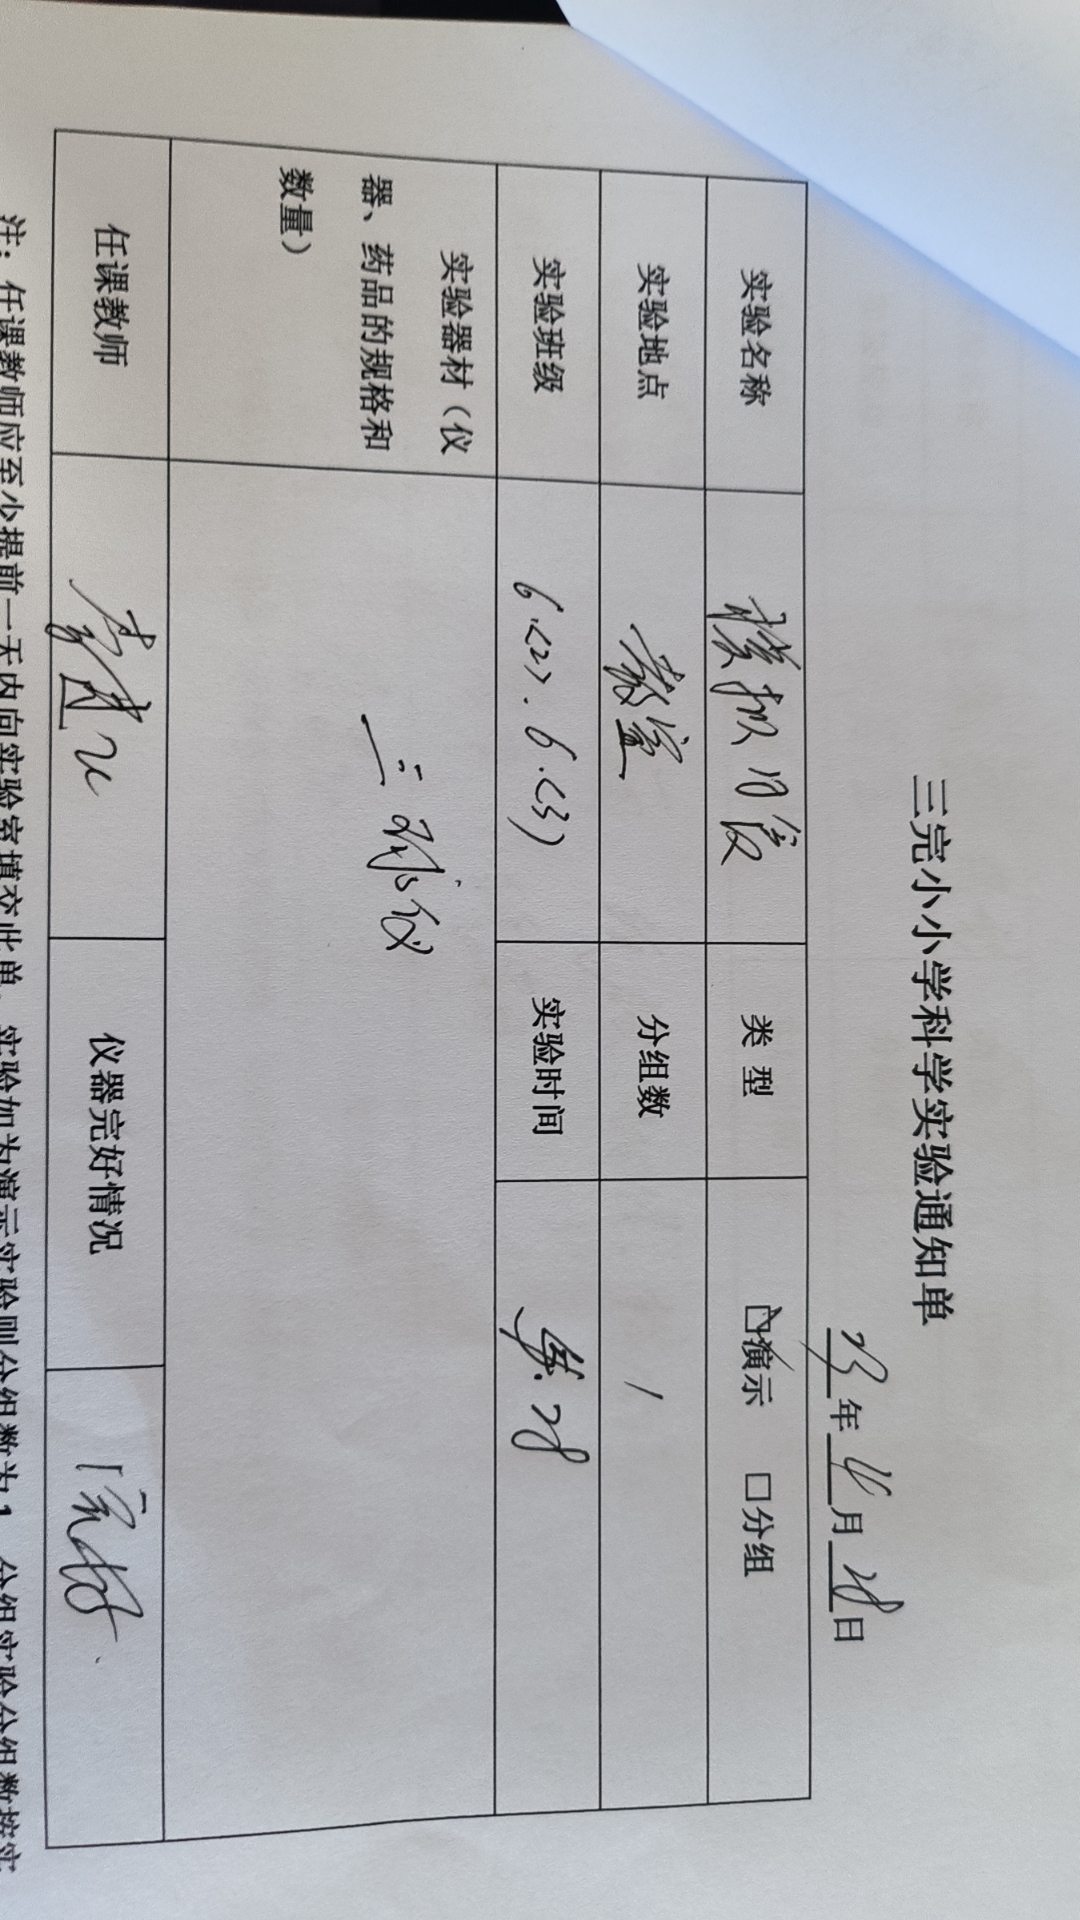 三完小小学科学实验通知单
23年4月28日
实验名称 模拟日食 类型 ☑演示 □分组
实验地点 教室 分组数 1
实验班级 6.<2>.6.<3) 实验时间 4.28
实验器材（仪
器、药品的规格和
数量）
三球仪
任课教师 仪器完好情况 完好
注：任课教师应至少提前一天内向实验室填交此单，实验如为演示实验则分组数为1，分组实验分组数按实